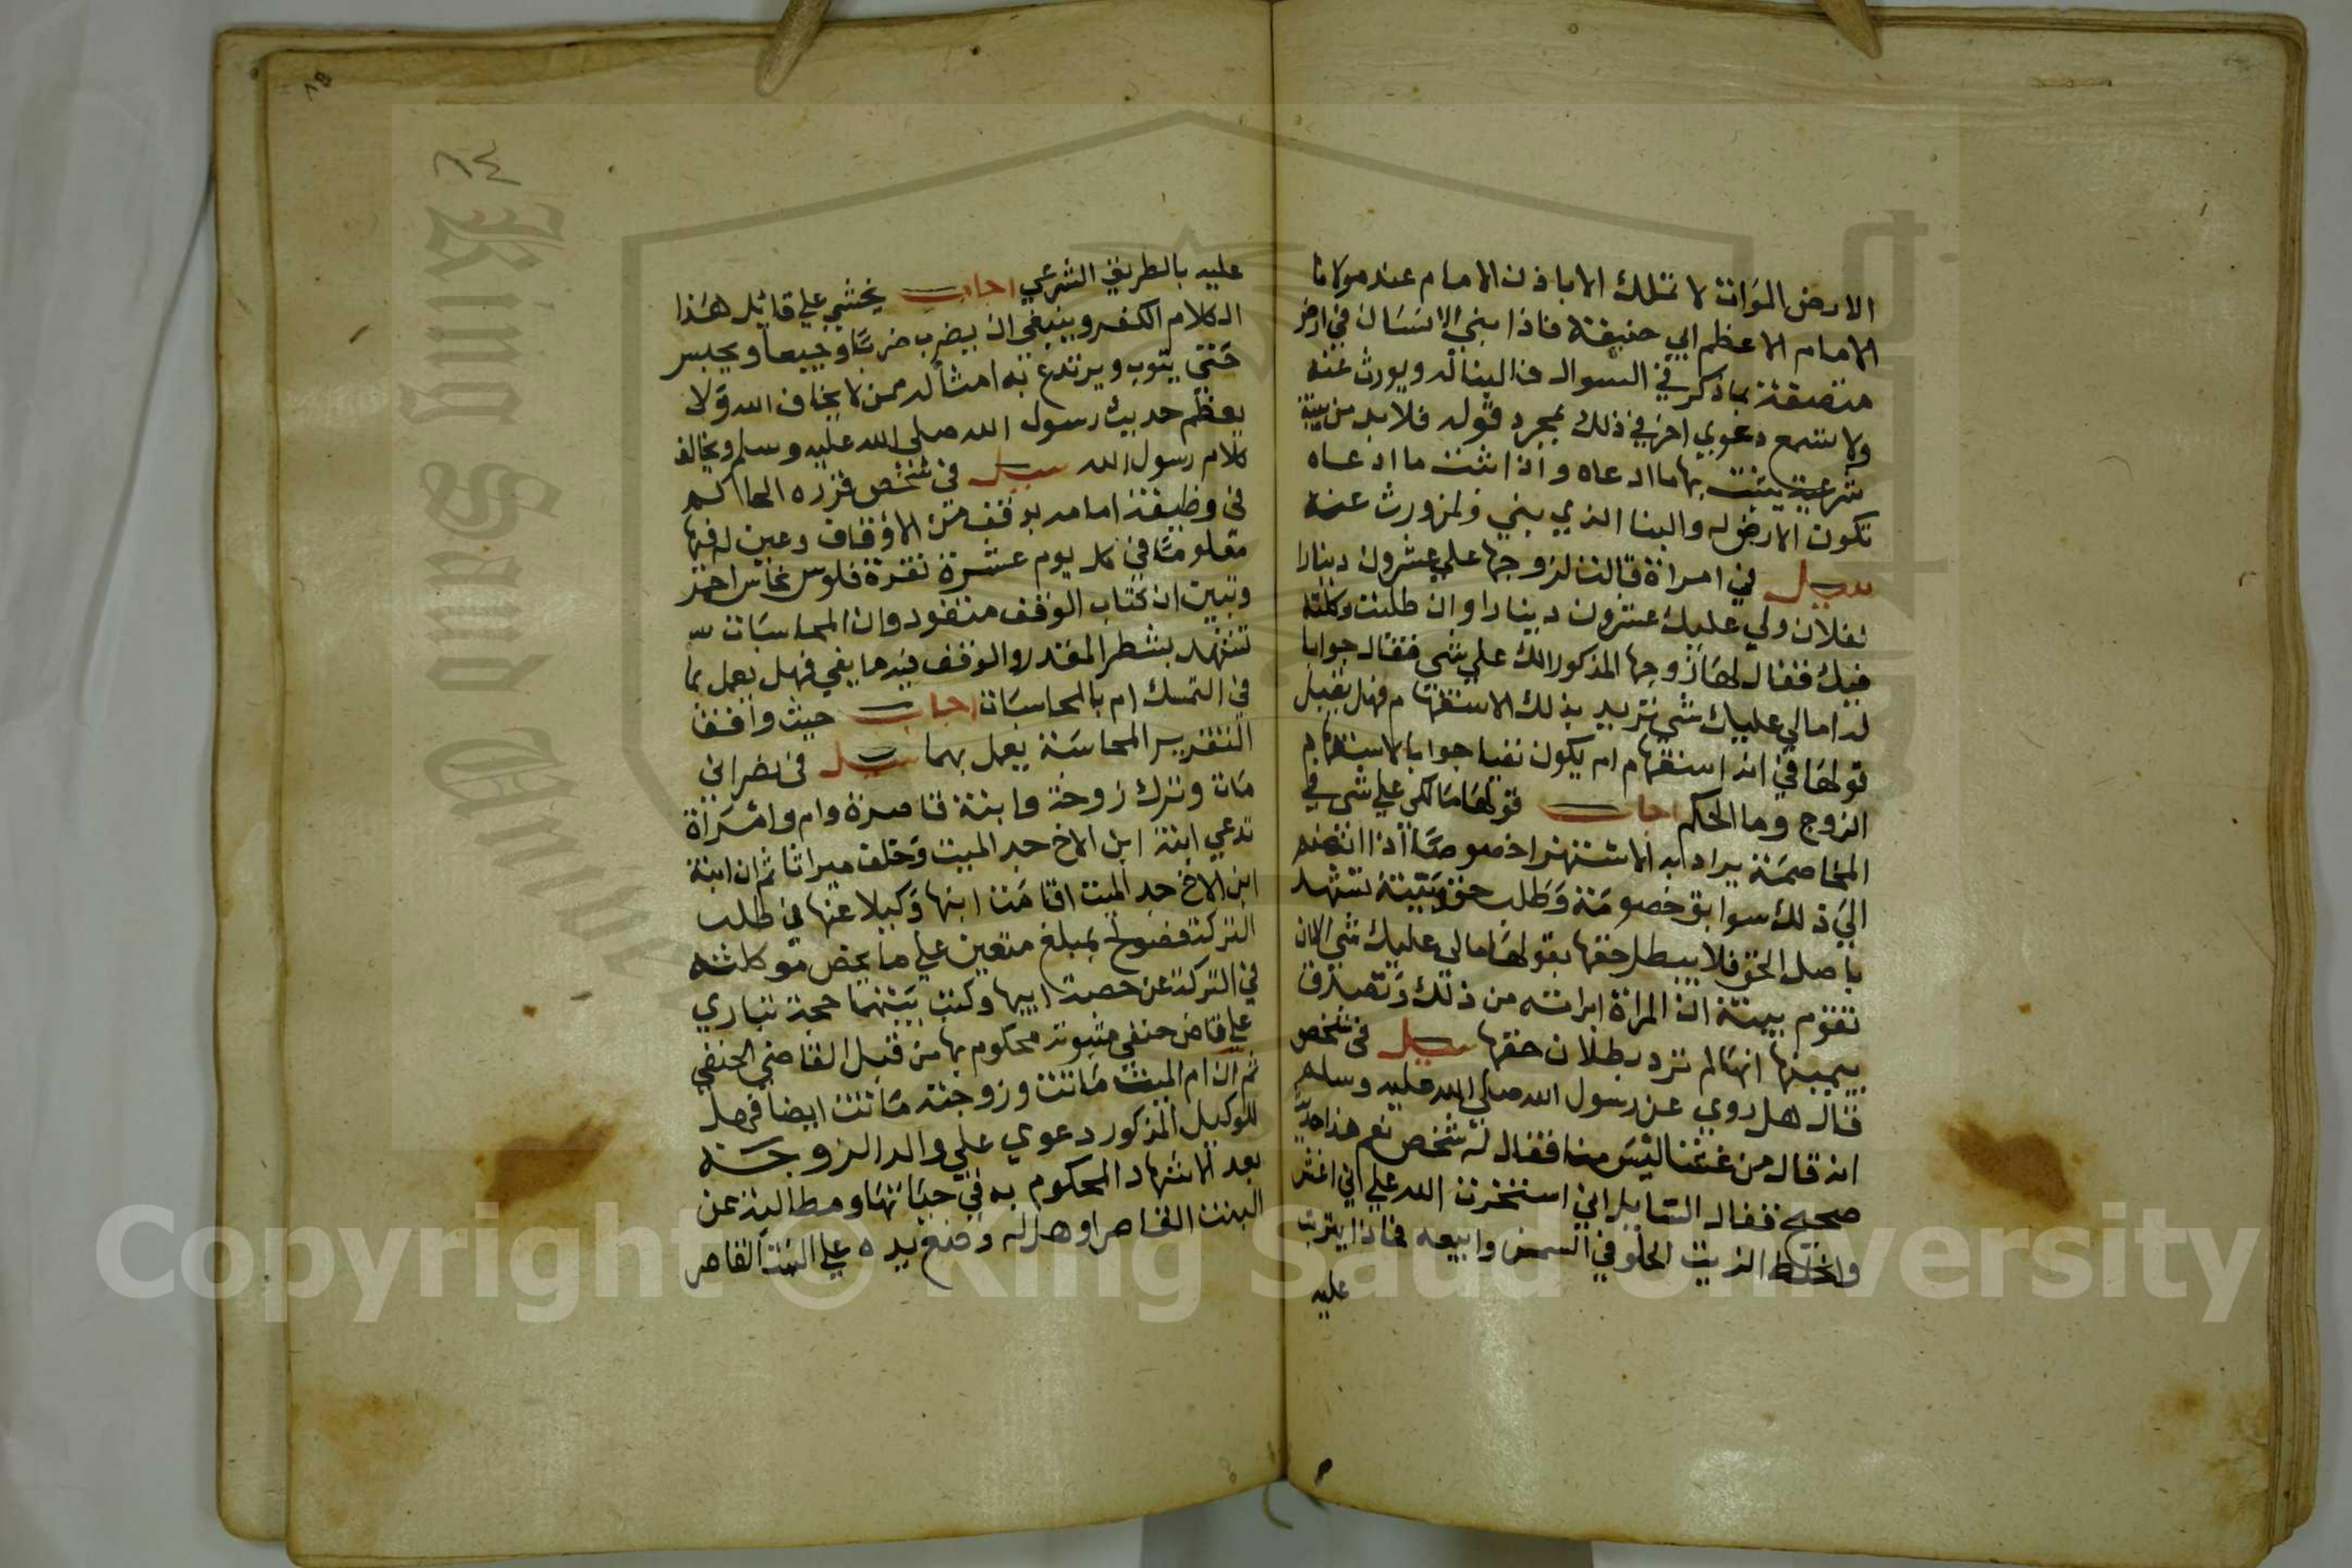 الارض الموات لا تملك الا باذن الامام عند مولانا
الامام الاعظم ابي حنيفة فاذا بني الانسان في ارض
متصفة بما ذكر في السوال فالبنا له ويورث عنه
ولا تسمع دعوي اخر في ذلك بمجرد قوله فلا بد من بينة
شرعية يثبت بها ما ادعاه واذا اثبت ما ادعاه
تكون الارض له والبنا الذي بني ولمن ورث عنه
سيل في امراة قالت لزوجها علي عشرون دينارا
لفلان ولي عليك عشرون دينارا وان طلبت وكلته
فيك فقال لها زوجها المذكور الك علي شي فقال جوابا
له اما لي عليك شي تريد بذلك الاستفهام فهل يقبل
قولها في انه استفهام ام يكون نفيا جوابا لاستفهام
الزوج وما الحكم اجاب قولها مالكي علي شي في
المخاصمة يراد به الاستهزا خصوصا اذا انضم
الي ذلك سوابق خصومة وطلب حق وبينة تشهد
باصل الحق فلا يبطل حقها بقولها مالي عليك شي الا ان
تقوم بينة ان المراة ابراته من ذلك وتصدق
بيمينها انها لم ترد بطلان حقها سيل في شخص
قال هل روي عن رسول الله صلي الله عليه وسلم
انه قال من غشنا ليس منا فقال له شخص نعم هذا حديث
صحيح فقال السايل اني استخرت الله علي اني اغش
واخلط الزيت الحلو في السمن وابيعه فماذا يترتب
عليه
٨٥
٨٤
عليه بالطريق الشرعي اجاب يخشي علي قائل هذا
الكلام الكفر وينبغي ان يضرب ضربا وجيعا ويحبس
حتي يتوب ويرتدع به امثاله ممن لا يخاف الله ولا
يعظم حديث رسول الله صلي الله عليه وسلم ويخالف
كلام رسول الله سيل في شخص قرره الحاكم
في وظيفة امامه بوقف من الاوقاف وعين له فيها
معلوما في كل يوم عشرة نقرة فلوس نحاس احد
وتبين ان كتاب الوقف مفقود وان المحاسبات
تشهد بشطر المقدر والوقف فيه ما يفي فهل يعمل بما
في التمسك ام بالمحاسبات اجاب حيث وافقت
التقرير المحاسبة يعمل بهما سيل في نصراني
مات وترك زوجة وابنة قاصرة وام وامراة
تدعي ابنة ابن الاخ جد الميت وخلف ميراثا ثم ان ابنة
ابن الاخ جد الميت اقامت ابنها وكيلا عنها في طلب
التركة فصولح بمبلغ متعين علي ما يخص موكلته
في التركة عن حصة ابيها وكتب بينهما حجة تباري
علي قاض حنفي مثبوتة محكوم بها من قبل القاضي الحنفي
ثم ان ام الميت ماتت وزوجته ماتت ايضا فهل
للوكيل المذكور دعوي علي والد الزوجة
بعد الاشهاد المحكوم به في حياتها ومطالبة عن
البنت القاصر او هل له وضع يده علي البنت القاصر
Copyright © King Saud University